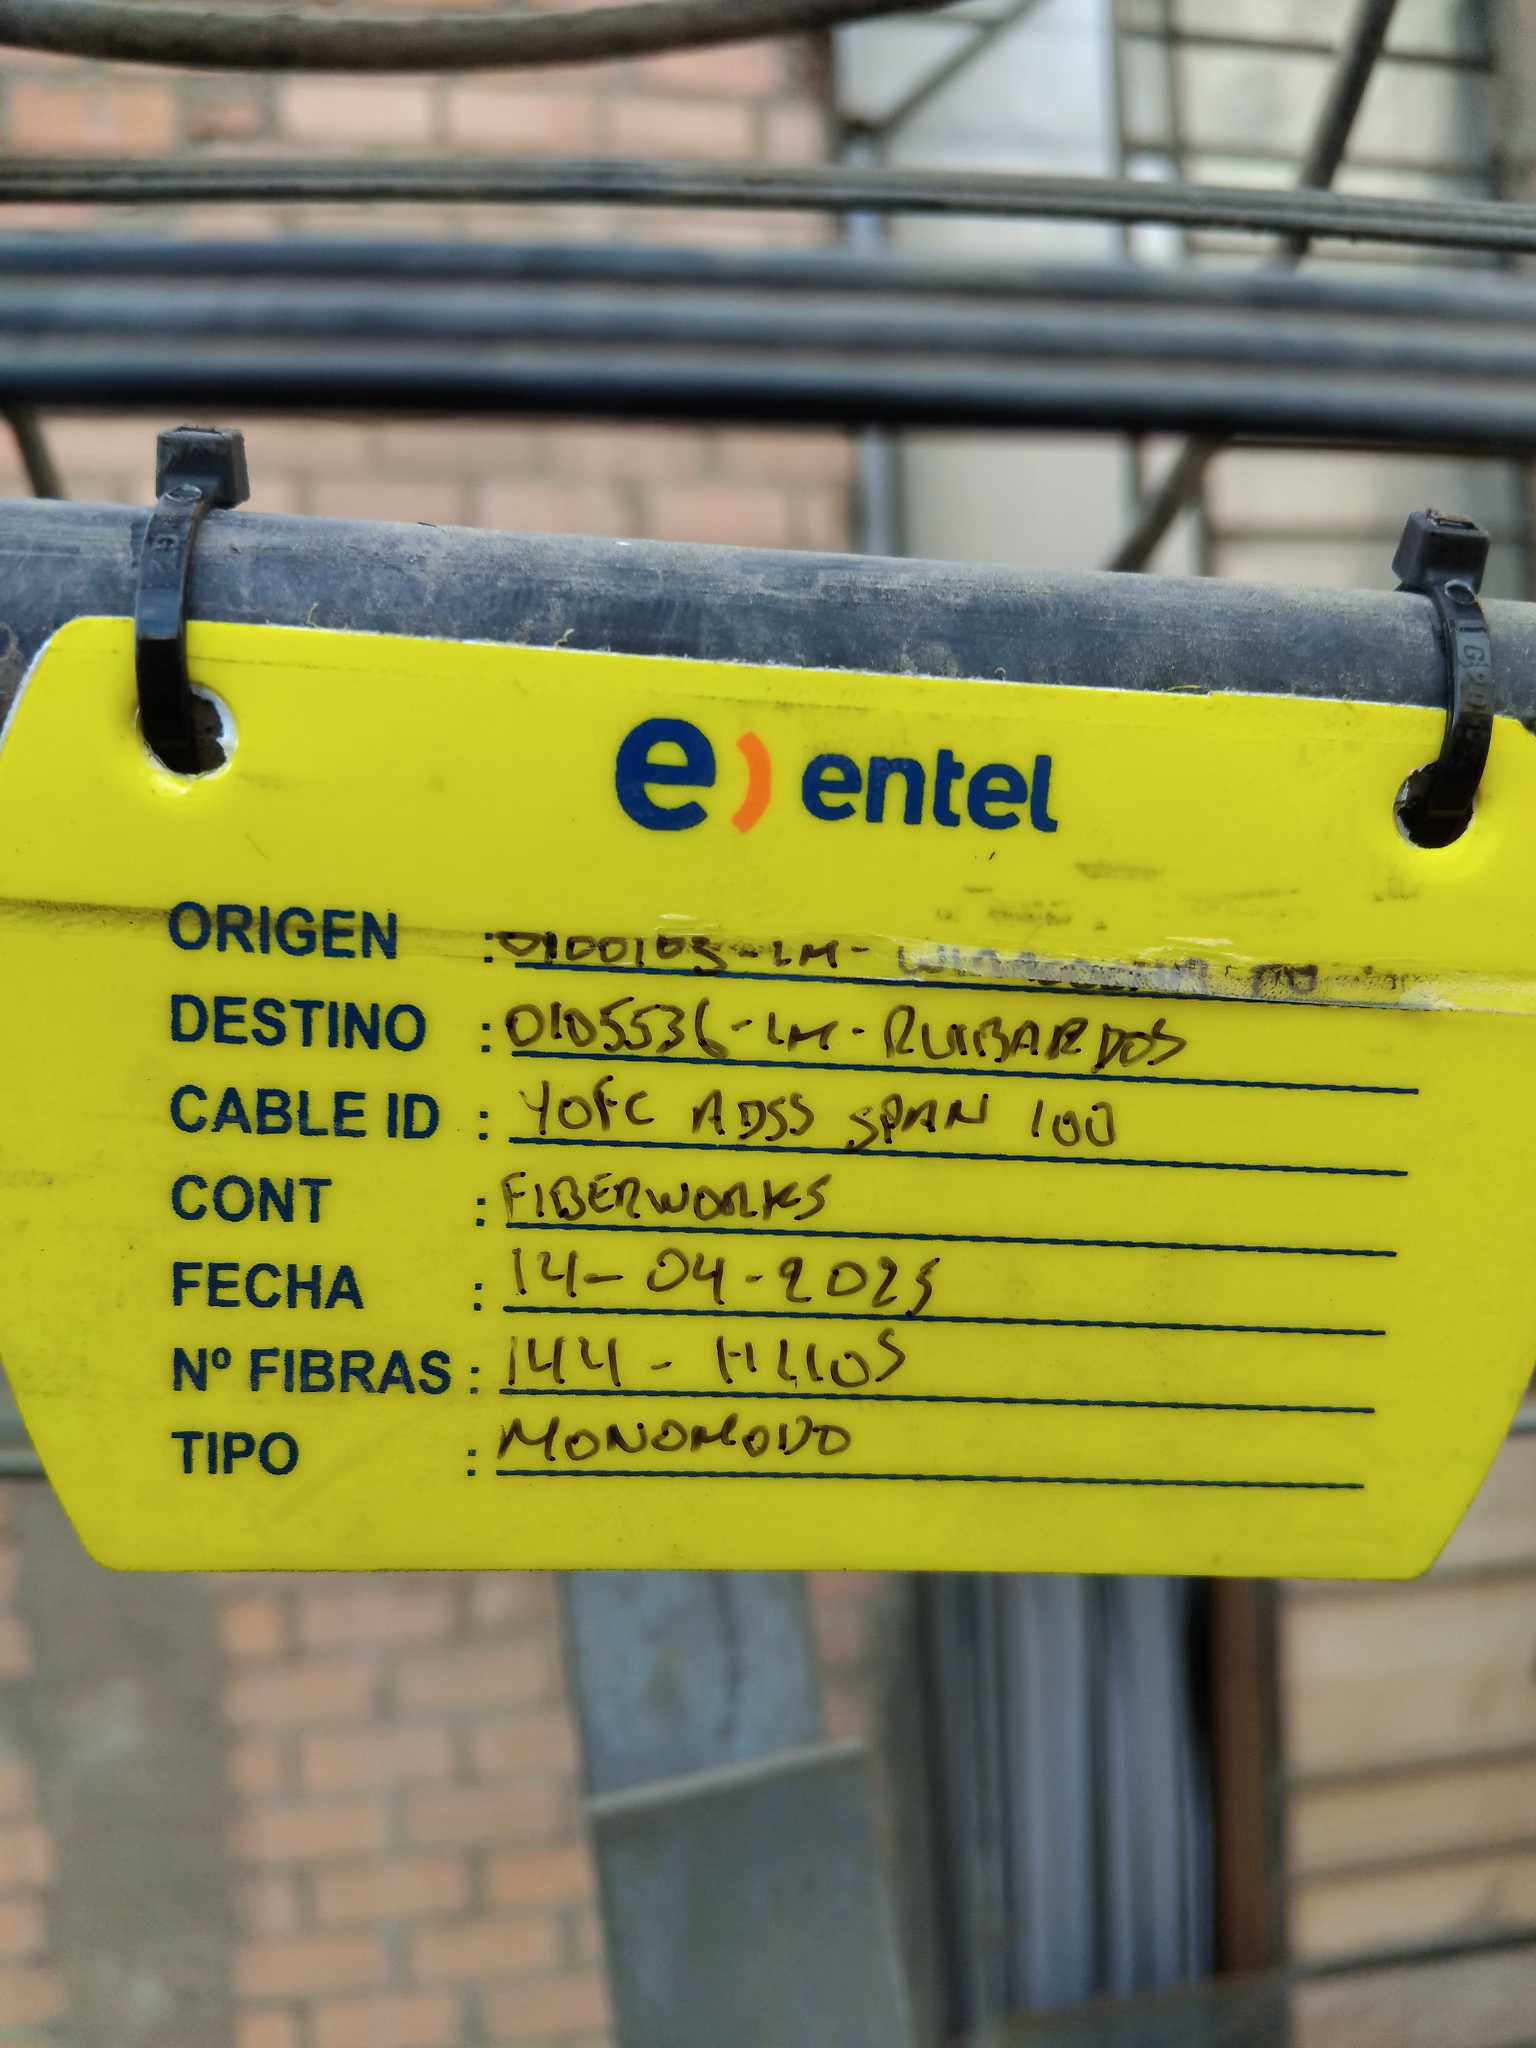 e) entel
ORIGEN : 0100103-LM-
DESTINO : 0105536-LM-RUIBARDOS
CABLE ID : YOFC ADSS SPAN 100
CONT : FIBERWORKS
FECHA : 14-04-2025
Nº FIBRAS : 144 - HILIOS
TIPO : MONOMODO